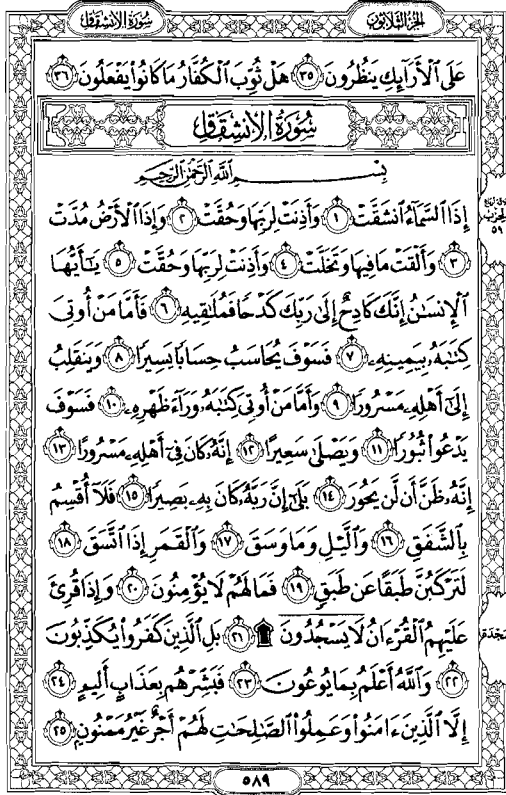 الجزء الثلاثون
سورة الانشقاق
عَلَى ٱلْأَرَآئِكِ يَنظُرُونَ ٣٥ هَلْ ثُوِّبَ ٱلْكُفَّارُ مَا كَانُوا۟ يَفْعَلُونَ ٣٦
سُورَةُ الانشِقَاقِ
بِسْمِ ٱللَّهِ ٱلرَّحْمَٰنِ ٱلرَّحِيمِ
إِذَا ٱلسَّمَآءُ ٱنشَقَّتْ ١ وَأَذِنَتْ لِرَبِّهَا وَحُقَّتْ ٢ وَإِذَا ٱلْأَرْضُ مُدَّتْ
٣ وَأَلْقَتْ مَا فِيهَا وَتَخَلَّتْ ٤ وَأَذِنَتْ لِرَبِّهَا وَحُقَّتْ ٥ يَٰٓأَيُّهَا
ٱلْإِنسَٰنُ إِنَّكَ كَادِحٌ إِلَىٰ رَبِّكَ كَدْحًا فَمُلَٰقِيهِ ٦ فَأَمَّا مَنْ أُوتِىَ
كِتَٰبَهُۥ بِيَمِينِهِۦ ٧ فَسَوْفَ يُحَاسَبُ حِسَابًا يَسِيرًا ٨ وَيَنقَلِبُ
إِلَىٰٓ أَهْلِهِۦ مَسْرُورًا ٩ وَأَمَّا مَنْ أُوتِىَ كِتَٰبَهُۥ وَرَآءَ ظَهْرِهِۦ ١٠ فَسَوْفَ
يَدْعُوا۟ ثُبُورًا ١١ وَيَصْلَىٰ سَعِيرًا ١٢ إِنَّهُۥ كَانَ فِىٓ أَهْلِهِۦ مَسْرُورًا ١٣
إِنَّهُۥ ظَنَّ أَن لَّن يَحُورَ ١٤ بَلَىٰٓ إِنَّ رَبَّهُۥ كَانَ بِهِۦ بَصِيرًا ١٥ فَلَآ أُقْسِمُ
بِٱلشَّفَقِ ١٦ وَٱلَّيْلِ وَمَا وَسَقَ ١٧ وَٱلْقَمَرِ إِذَا ٱتَّسَقَ ١٨
لَتَرْكَبُنَّ طَبَقًا عَن طَبَقٍ ١٩ فَمَا لَهُمْ لَا يُؤْمِنُونَ ٢٠ وَإِذَا قُرِئَ
عَلَيْهِمُ ٱلْقُرْءَانُ لَا يَسْجُدُونَ ۩ ٢١ بَلِ ٱلَّذِينَ كَفَرُوا۟ يُكَذِّبُونَ
٢٢ وَٱللَّهُ أَعْلَمُ بِمَا يُوعُونَ ٢٣ فَبَشِّرْهُم بِعَذَابٍ أَلِيمٍ ٢٤
إِلَّا ٱلَّذِينَ ءَامَنُوا۟ وَعَمِلُوا۟ ٱلصَّٰلِحَٰتِ لَهُمْ أَجْرٌ غَيْرُ مَمْنُونٍ ٢٥
٥٨٩